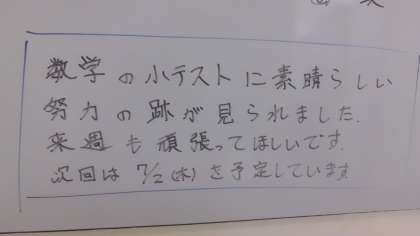 数学の小テストに素晴らしい
努力の跡が見られました.
来週も頑張ってほしいです.
次回は 7/2(木)を予定しています